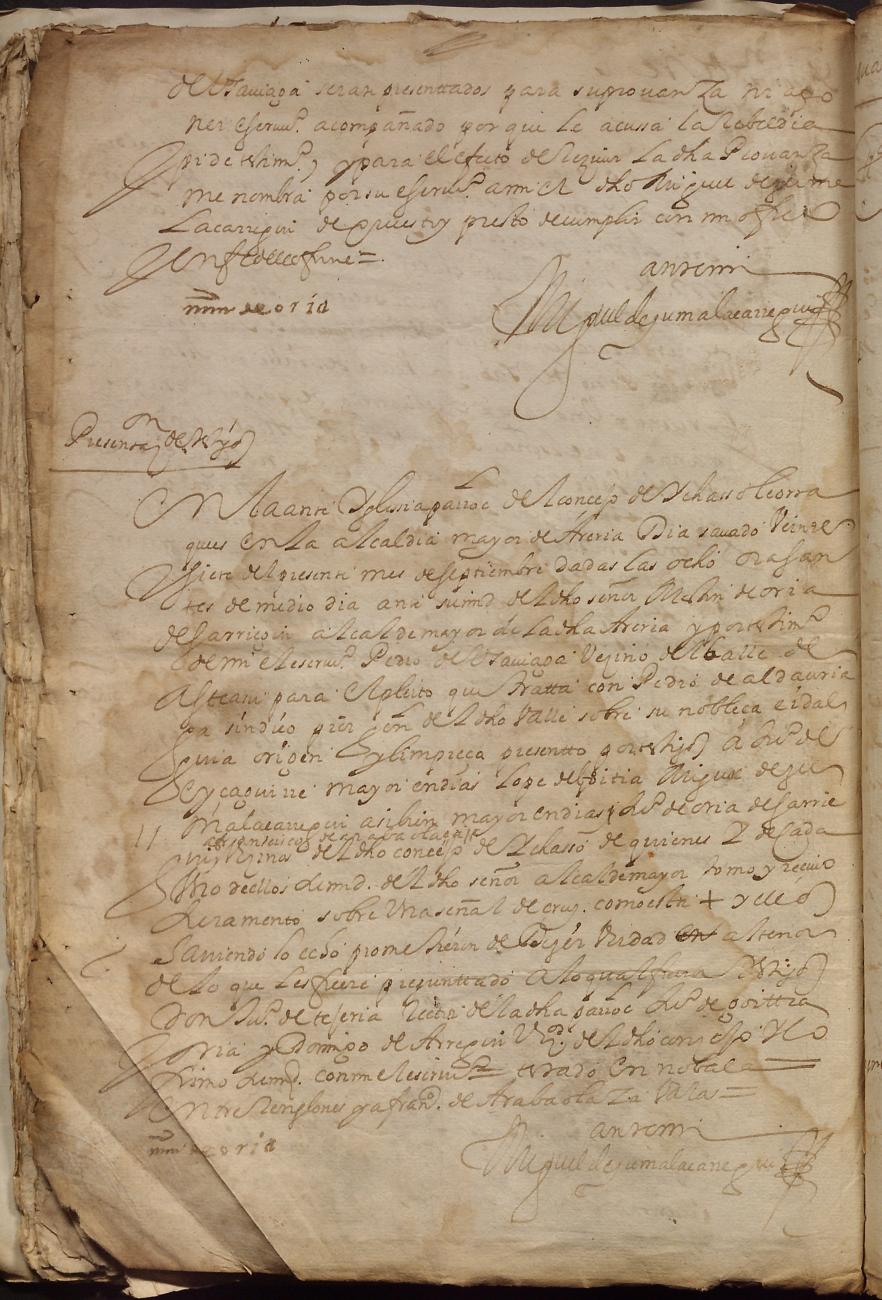 de Usaviaga seran presenttados para su provanza ni npo
ner escrivº. acompañado porque le acussa la Rebeldia
pide testimº, y para el efeto de Rezivir la dha Provanza
me nombra por su escrivº. a mi el dho Miguel de gume
Lacarregui de puesto y presto de cumplir con mi oficio
Y en fee dello firme =
ante mi
mrn de oria
Miguel de gumalacarregui
Presentaon de tsigos
En la ante Yglesia parroc de el concejo de Ychasso Leorra
ques en la alcaldia mayor de Areria Dia savado Veinte
y siete del presente mes de septiembre dadas las ocho oras an
tes de medio dia ante su md de el dho señor Mrn de oria
de Larriegui alcalde mayor de la dha Areria y por testimº
de mi el escrivº. Pedro de Usaviaga Vezino de el Valle de
Asteasu para el pleito que tratta con Pedro de aldauria
ga sindico prer gen de el dho Valle sobre su nobleça e idal
guia origen y limpieça presentto por testigos á Juº de
Eyçaguirre mayor en dias Lope de Beitia Miguel de gu
malacarregui asi bien mayor en dias y Juº de oria de Larrie
a fransisco de aravaolaça
gui vezinos de el dho concejo de Ychasso de quienes y de Cada
Uno dellos su md. de el dho señor alcalde mayor tomo y recivio
Juramento sobre Una señal de cruz. como esta + y ellos
Haviendo lo echo prometieron de Dezir Verdad en al tenor
de lo que les fuere preguntado a lo qual fueron testigos
Don Juº. de tejeria Rector de la dha parroc Juº de goittia
Yoria y Domingo de Arregui Vzºs de el dho concejo y lo
firmo su md. con mi el escrivº = testado en no bala =
Entre Renglones y a franº. de Arabaolaza Vala =
ante mi
mrn de oria
Miguel de gumalacarregui